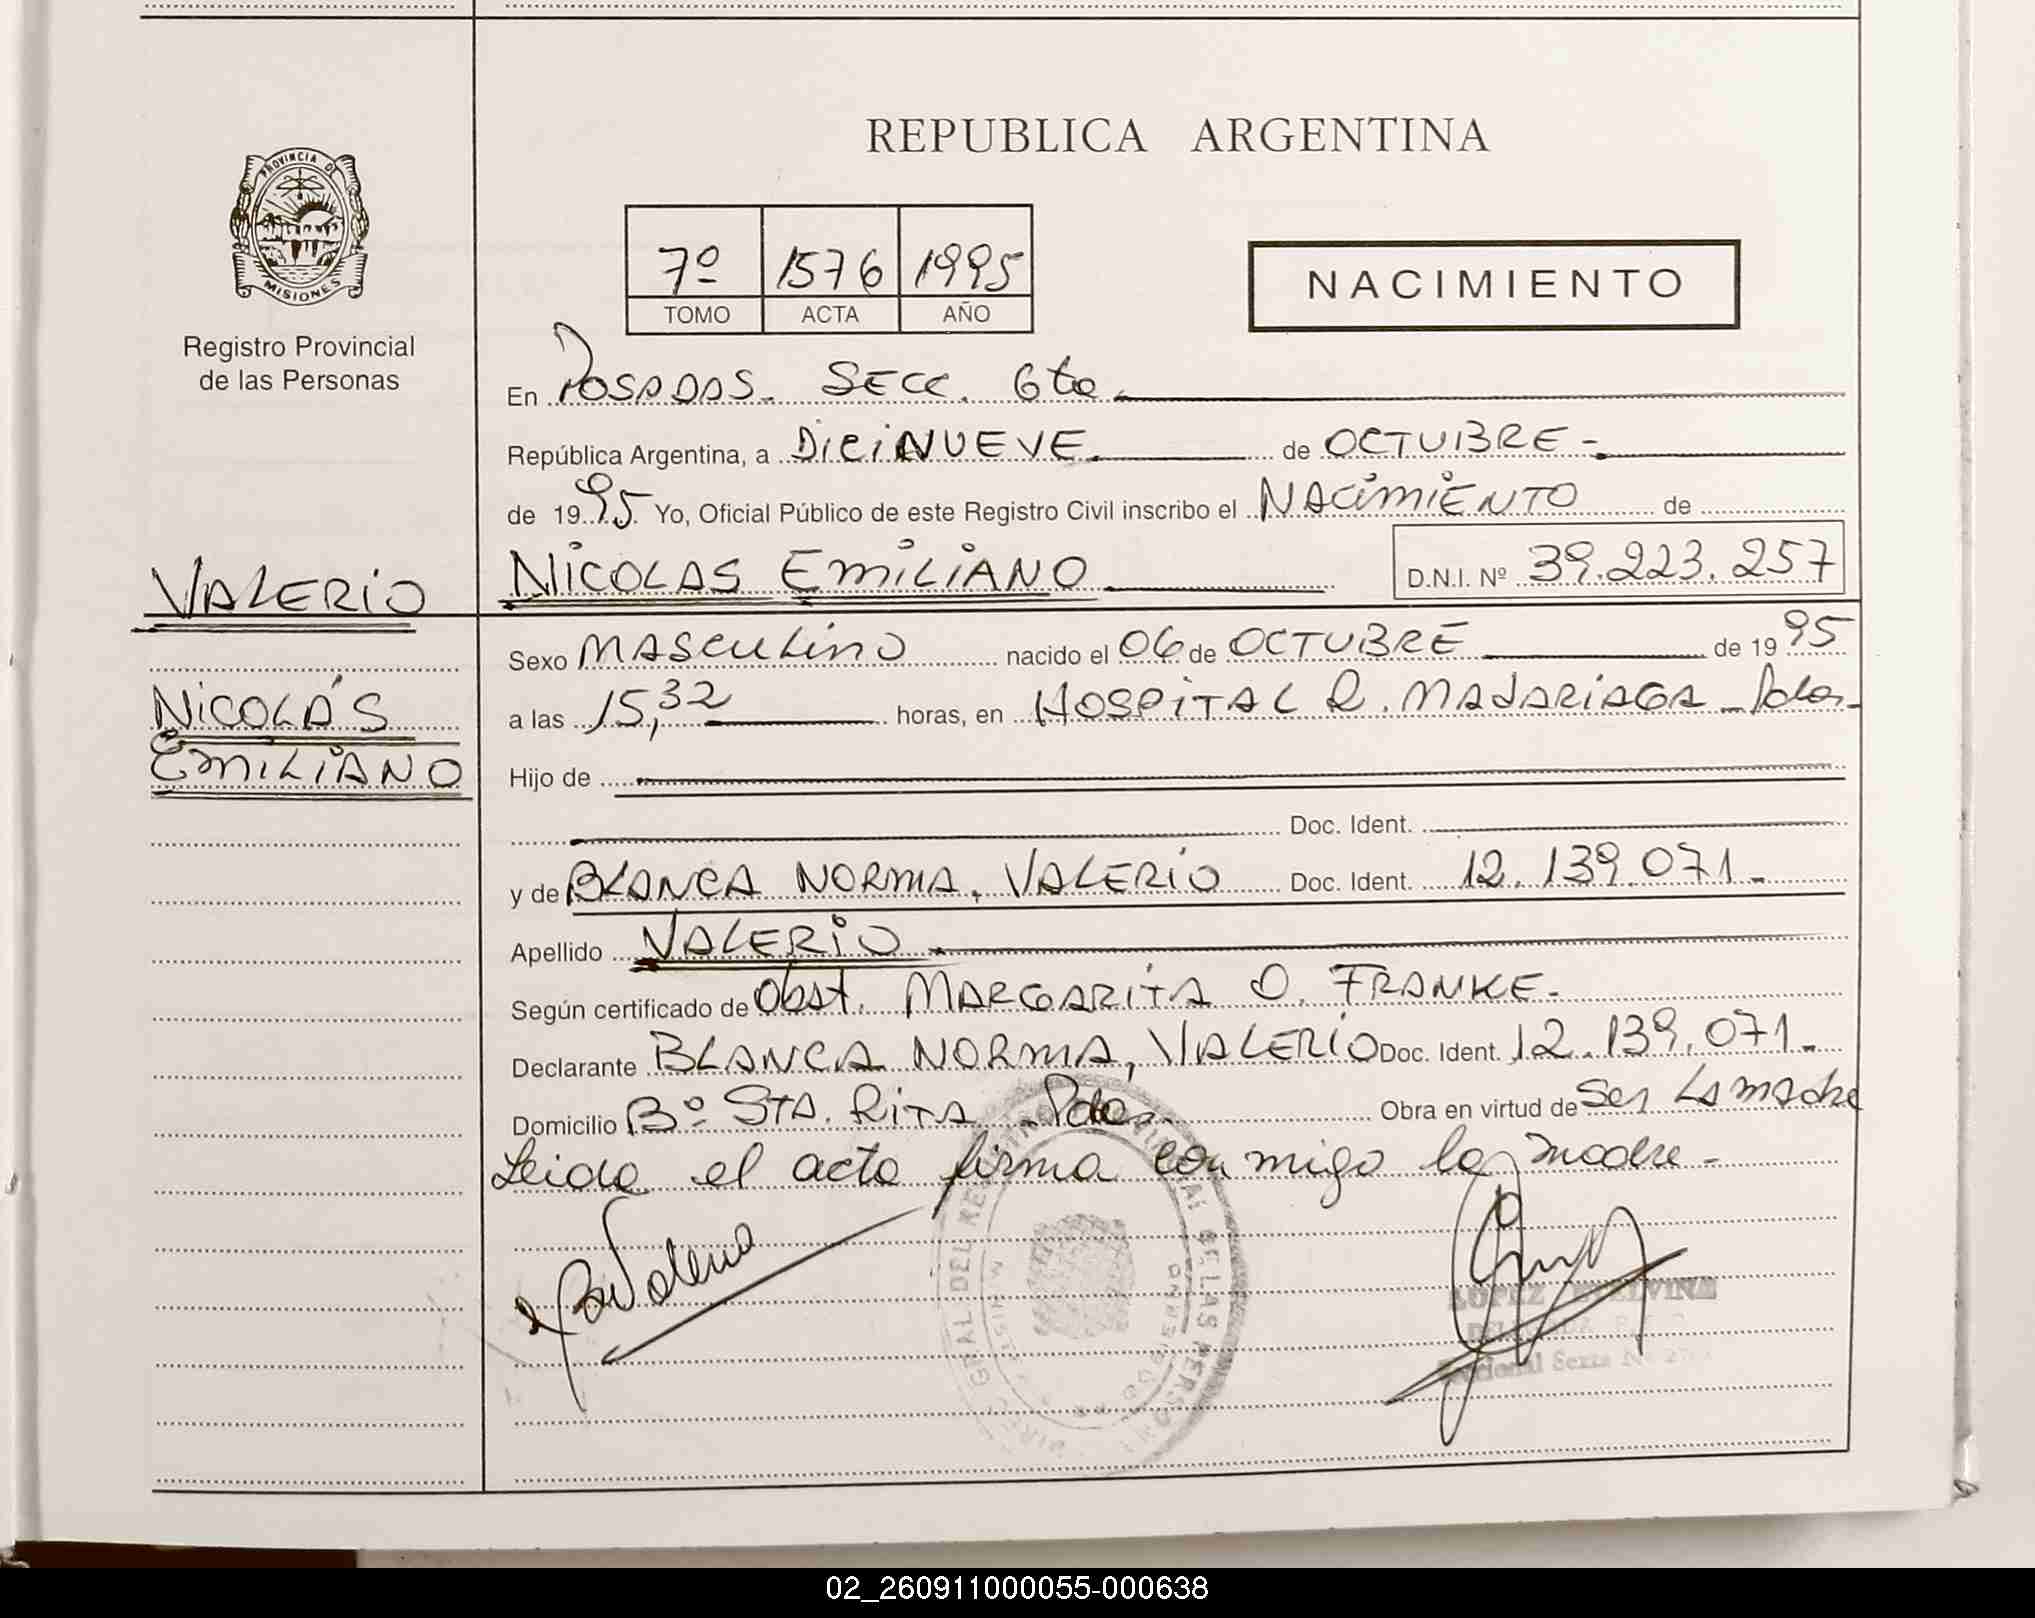 REPUBLICA ARGENTINA
PROVINCIA DE
MISIONES
Registro Provincial
de las Personas
7º 1576 1995
TOMO ACTA AÑO
NACIMIENTO
En POSADAS. SECC. 6ta.
República Argentina, a DICINUEVE. de OCTUBRE -
de 1995 Yo, Oficial Público de este Registro Civil inscribo el NACIMIENTO de
VALERIO
NICOLAS EMILIANO D.N.I. Nº 39.223.257
Sexo MASCULINO nacido el 06 de OCTUBRE de 1995
NICOLÁS
EMILIANO
a las 15,32 horas, en HOSPITAL R. MADARIAGA - Pdas.
Hijo de
Doc. Ident.
y de BLANCA NORMA, VALERIO Doc. Ident. 12.139.071.-
Apellido VALERIO
Según certificado de Obst. MARGARITA O. FRANKE.-
Declarante BLANCA NORMA, VALERIO Doc. Ident. 12.139.071.-
Domicilio Bº STA. RITA Pdas. Obra en virtud de Ser La madre
Leida el acta firma conmigo la madre -
B Valerio
DEL REGISTRO PROVINCIAL DE LAS PERSONAS
LOPEZ ETELVINA
Seccional Sexta
02_260911000055-000638